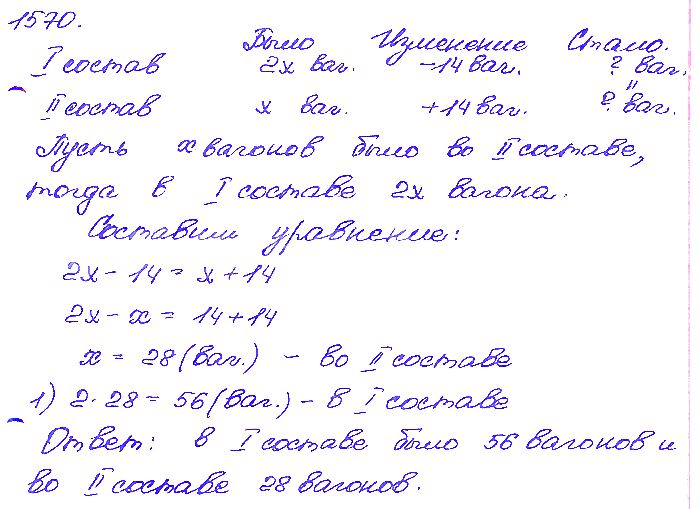 1570.
Было Изменение Стало.
I состав 2x ваг. -14 ваг. ? ваг.
"
II состав x ваг. +14 ваг. ? ваг.
Пусть x вагонов было во II составе,
тогда в I составе 2x вагона.
Составим уравнение:
2x - 14 = x + 14
2x - x = 14 + 14
x = 28 (ваг.) - во II составе
1) 2 · 28 = 56 (ваг.) - в I составе
Ответ: в I составе было 56 вагонов и
во II составе 28 вагонов.